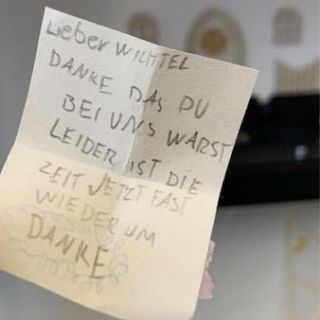 Lieber WICHTEL
DANKE DAS DU
BEI UNS WARST
LEIDER IST DIE
ZEIT JETZT FAST
WIEDER UM
DANKE